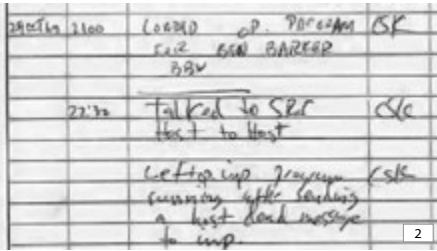 29 Oct 69 2100 LOADED OP. PROGRAM CSK
FOR BEN BARKER
BBN
22:30 Talked to SRI CSK
Host to Host
Left op. imp program CSK
running after sending
a host dead message
to imp.
2